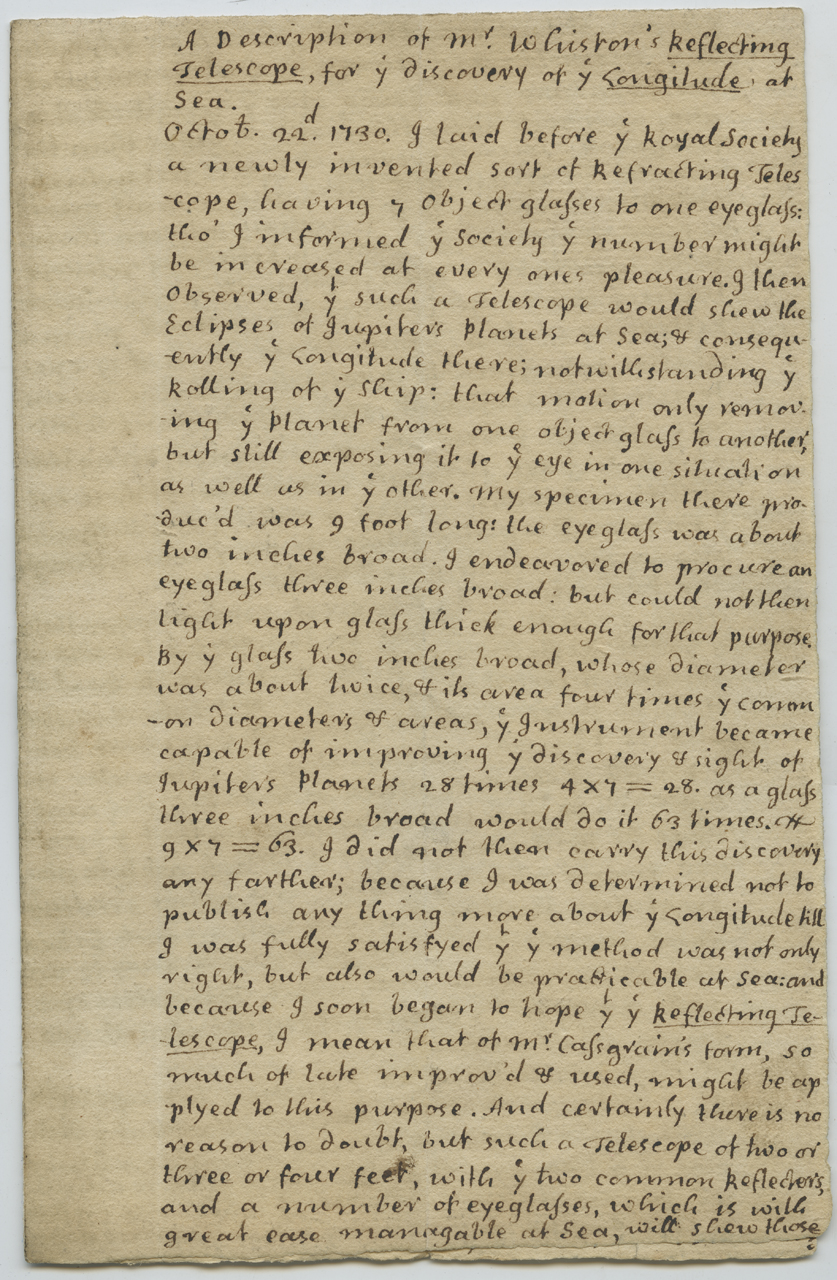 A Description of Mr. Whiston's Reflecting
Telescope, for ye discovery of ye Longitude at
Sea.
Octob. 22d. 1730. I laid before ye Royal Society
a newly invented sort of Refracting Teles
-cope, having 7 Object glasses to one eyeglass:
tho' I informed ye Society yt number might
be increased at every ones pleasure. I then
Observed, yt such a Telescope would shew the
Eclipses of Jupiters Planets at Sea; & consequ-
-ently ye Longitude there; notwithstanding ye
Rolling of ye Ship: that motion only remov-
-ing ye Planet from one object glass to another,
but still exposing it to ye eye in one situation
as well as in ye other. My specimen there pro-
-duc'd was 9 foot long: the eyeglass was about
two inches broad. I endeavored to procure an
eyeglass three inches broad: but could not then
light upon glass thick enough for that purpose.
By ye glass two inches broad, whose diameter
was about twice, & its area four times ye comm
-on diameters & areas, ye Instrument became
capable of improving ye discovery & sight of
Jupiters Planets 28 times 4 X 7 = 28. as a glass
three inches broad would do it 63 times.
9 X 7 = 63. I did not then carry this discovery
any farther; because I was determined not to
publish any thing more about ye Longitude till
I was fully satisfyed yt ye method was not only
right, but also would be practicable at Sea: and
because I soon began to hope yt ye Reflecting Te-
lescope, I mean that of Mr. Cassgrain's form, so
much of late improv'd & used, might be ap
plyed to this purpose. And certainly there is no
reason to doubt, but such a Telescope of two or
three or four feet, with ye two common Reflectors,
and a number of eyeglasses, which is with
great ease managable at Sea, will shew those